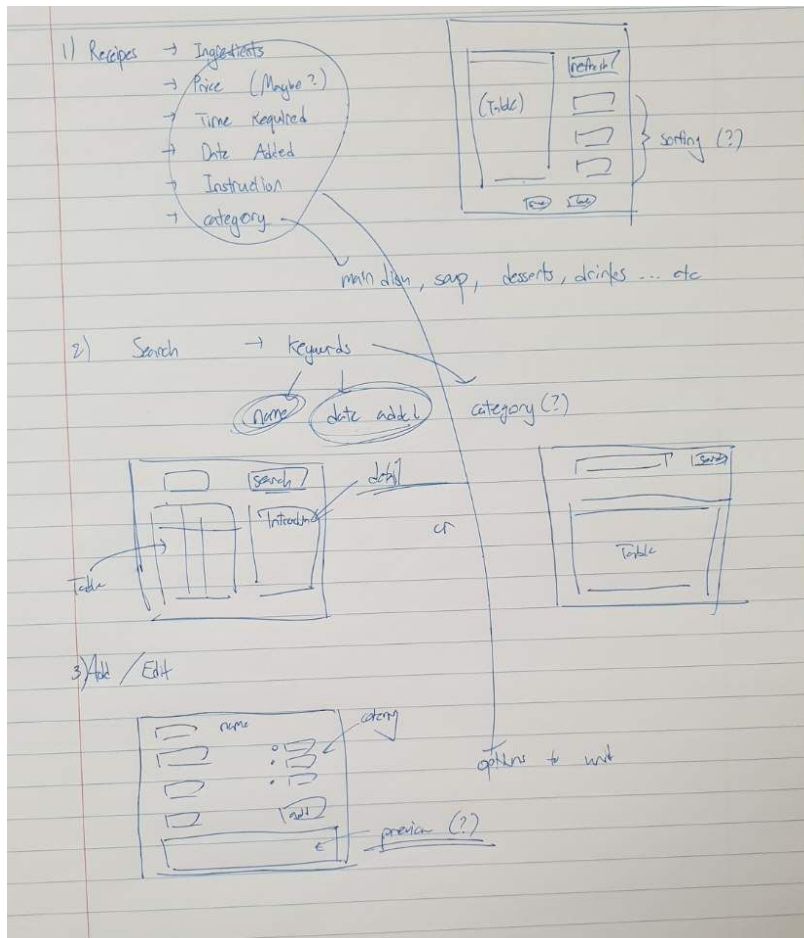 1) Recipes → Ingredients
→ Price (Maybe?)
→ Time Required
→ Date Added
→ Instruction
→ category
refresh
(Table)
sorting (?)
main dish, soup, desserts, drinks ... etc
2) Search → keywords
name date added category (?)
search detail
Table
or
search
Table
3) Add / Edit
name
add
options to
preview (?)